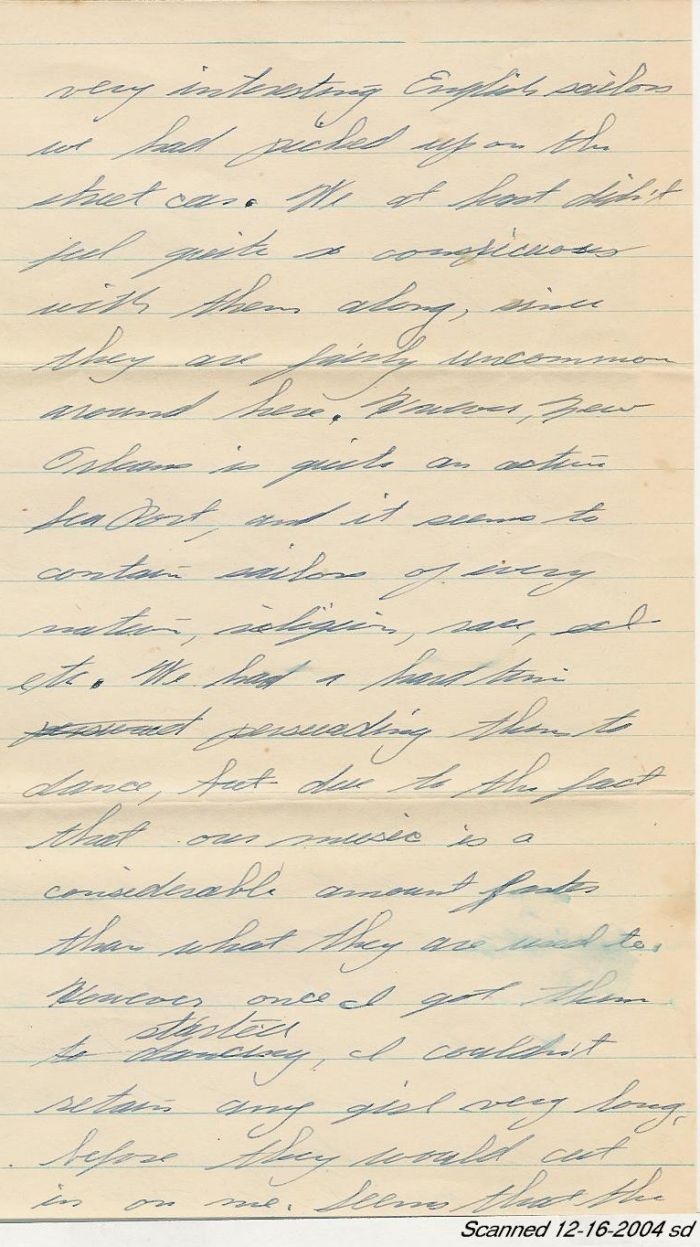 very interesting English sailors
we had picked up on the
street car. We at least didn't
feel quite so conspicuous
with them along, since
they are fairly uncommon
around here. However, New
Orleans is quite an active
Sea Port, and it seems to
contain sailors of every
nation, religion, race,
etc. We had a hard time
persuading them to
dance, but due to the fact
that our music is a
considerable amount faster
than what they are used to.
However once I got them
started
to dancing, I couldn't
retain any girl very long,
before they would cut
in on me. Seems that the
Scanned 12-16-2004 sd